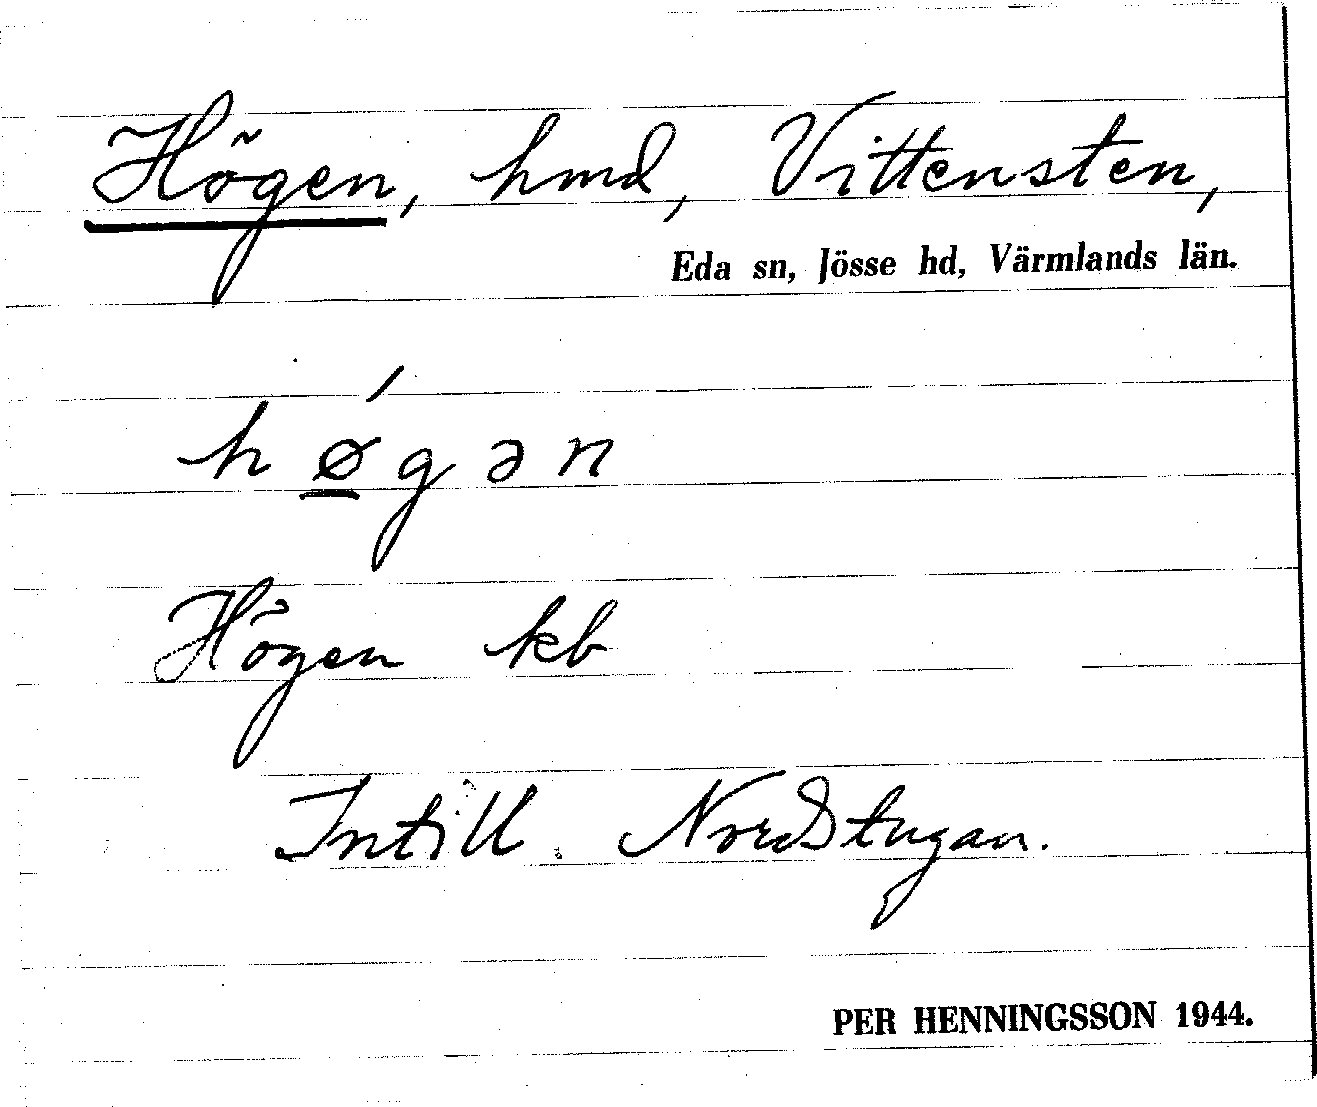 Högen, hmd, Vittensten,
Eda sn, Jösse hd, Värmlands län.
hǿ̲gən
Högen kb
Intill Nordstugan.
PER HENNINGSSON 1944.